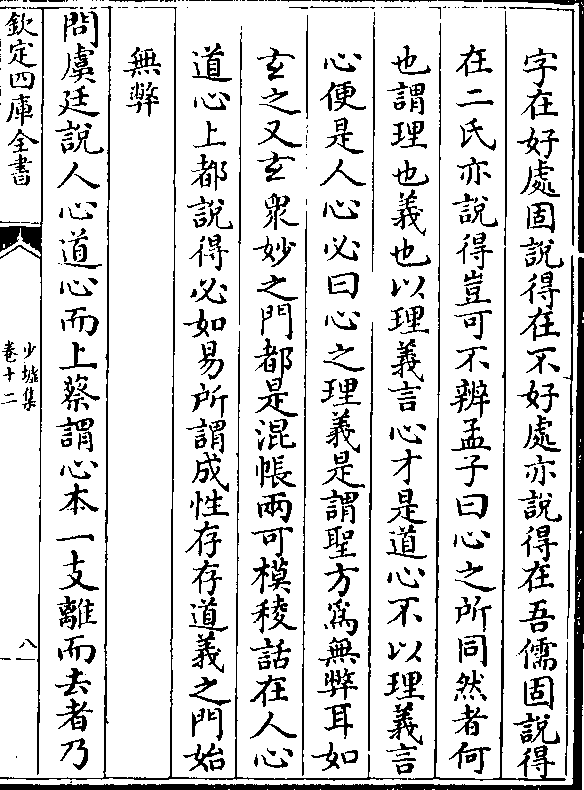 字在好處固說得在不好處亦說得在吾儒固說得
在二氏亦說得豈可不辨孟子曰心之所同然者何
也謂理也義也以理義言心才是道心不以理義言
心便是人心必曰心之理義是謂聖方為無弊耳如
玄之又玄衆妙之門都是混帳兩可模稜話在人心
道心上都說得必如易所謂成性存存道義之門始
無弊
問虞廷說人心道心而上蔡謂心本一支離而去者乃
欽定四庫全書
少墟集
卷十二
八